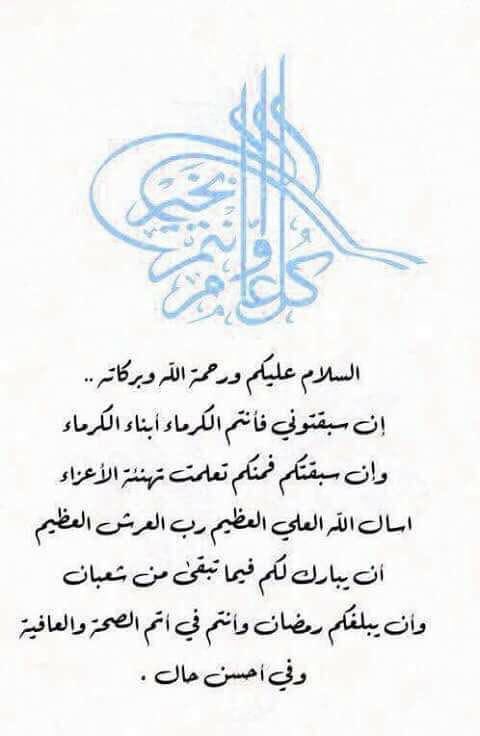 كل عام وأنتم بخير
السلام عليكم ورحمة الله وبركاته ..
إن سبقتوني فأنتم الكرماء أبناء الكرماء
وإن سبقتكم فمنكم تعلمت تهنئة الأعزاء
اسال الله العلي العظيم رب العرش العظيم
أن يبارك لكم فيما تبقى من شعبان
وأن يبلغكم رمضان وأنتم في أتم الصحة والعافية
وفي أحسن حال .